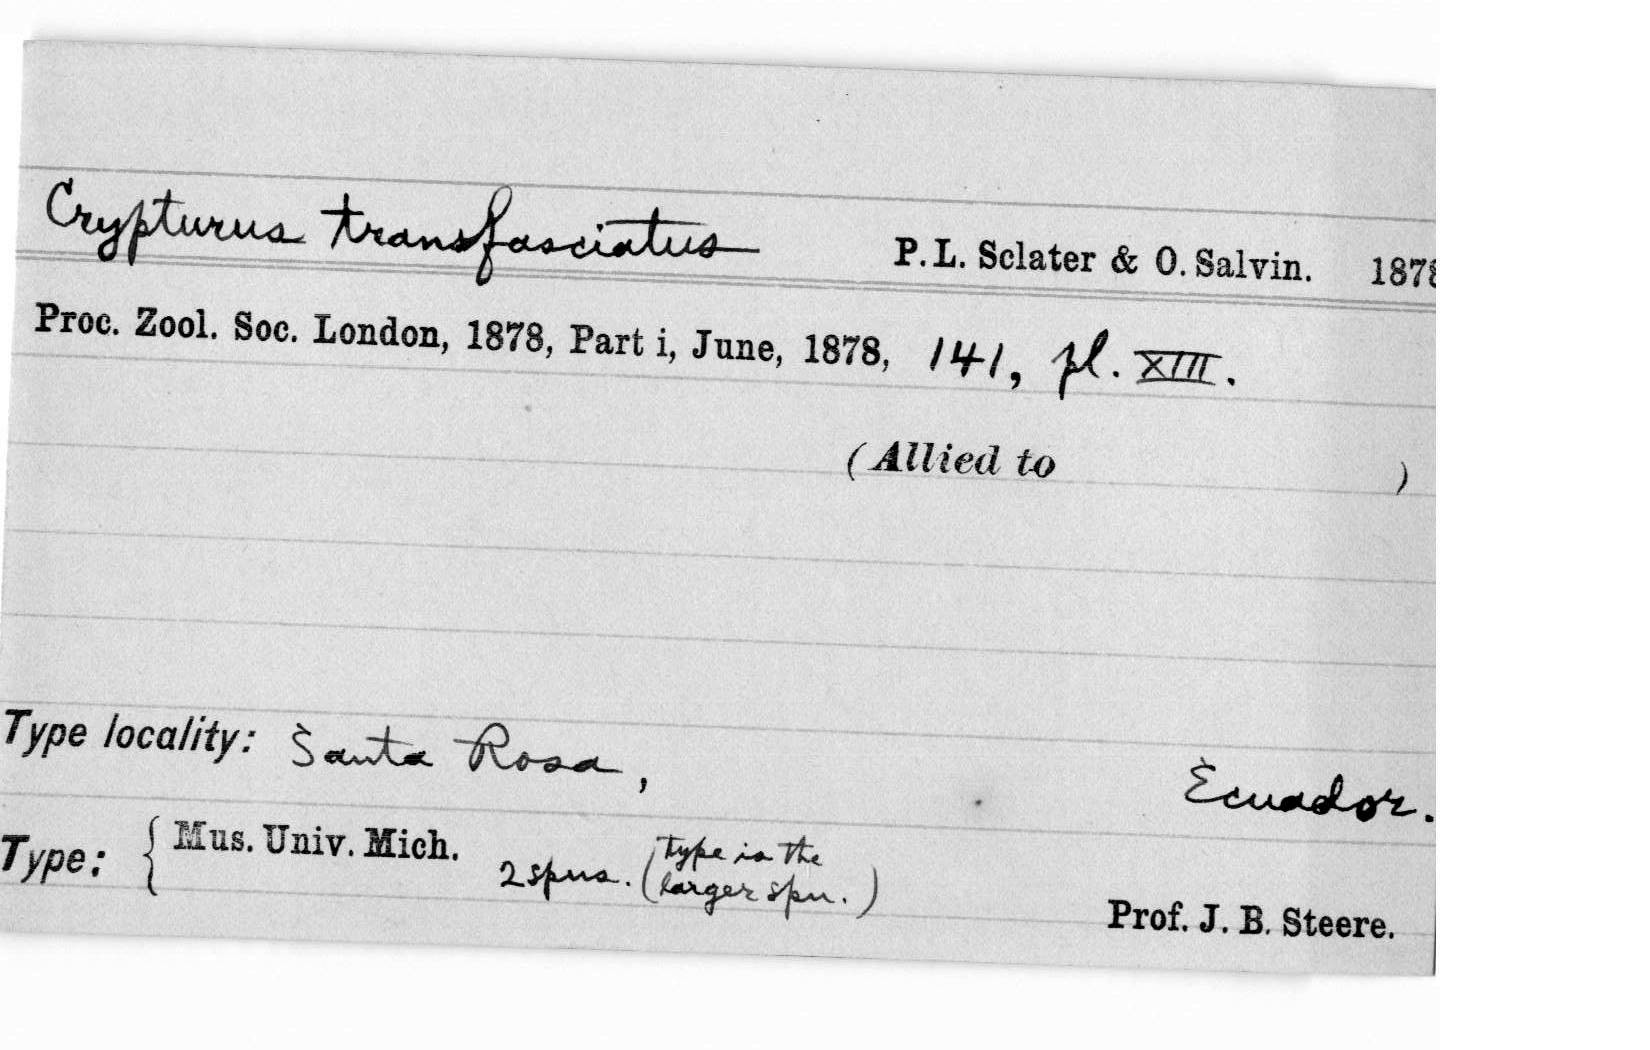 Crypturus transfasciatus P. L. Sclater & O. Salvin. 1878
Proc. Zool. Soc. London, 1878, Part i, June, 1878, 141, pl. XIII.
(Allied to )
Type locality: Santa Rosa, Ecuador.
Type: { Mus. Univ. Mich. 2 spns. (type is the
larger spn.)
Prof. J. B. Steere.